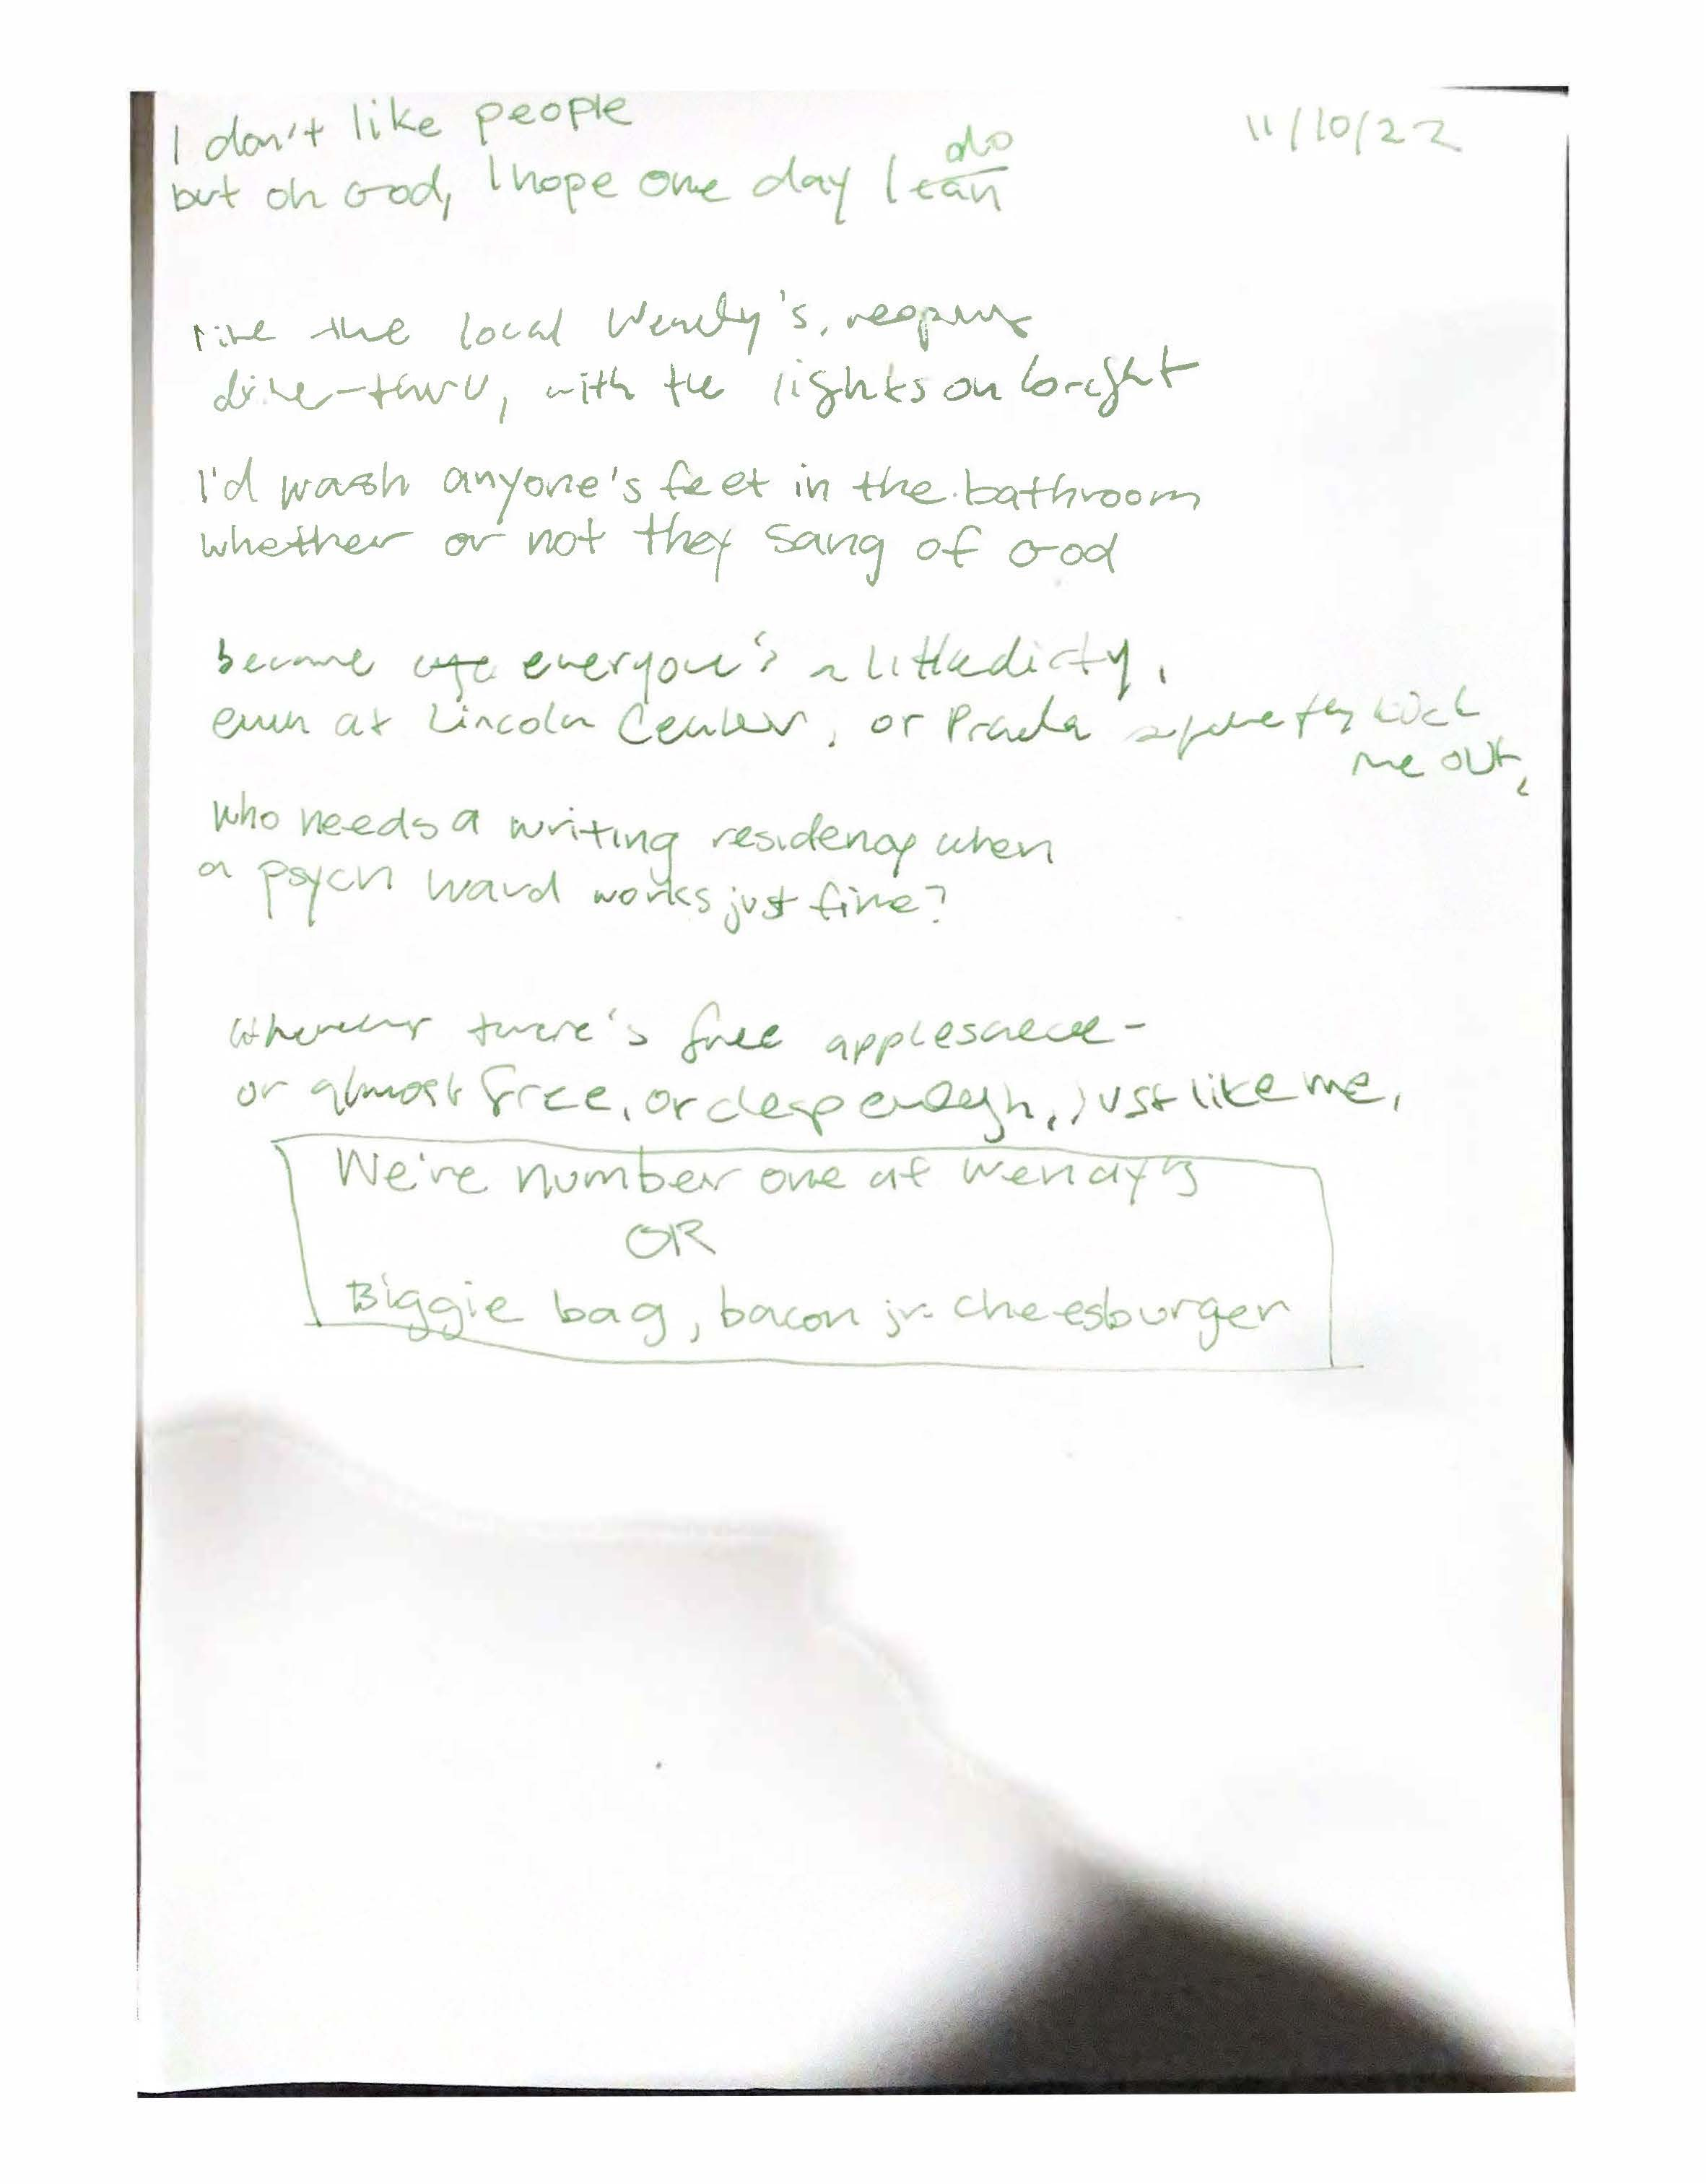 11/10/22
I don't like people
but oh God, I hope one day I can do
like the local Wendy's, reopens
drive-thru, with the lights on bright
I'd wash anyone's feet in the bathroom
whether or not they sang of God
because everyone's a little dirty,
even at Lincoln Center, or Prada before they kick
me out,
who needs a writing residency when
a psych ward works just fine?
Wherever there's free applesauce-
or almost free, or cheap enough, just like me,
We're number one at Wendy's
OR
Biggie bag, bacon jr. cheesburger